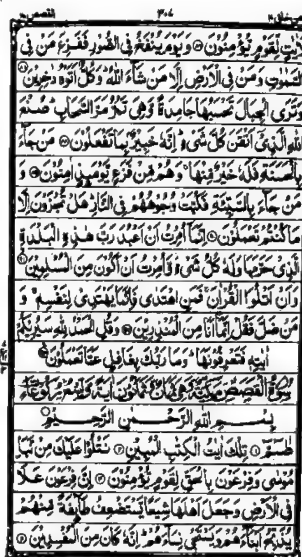 القصص ٢٨ ٣٠٧ امن خلق ٢٠
لَاٰيٰتٍ لِّقَوْمٍ يُّؤْمِنُوْنَ ۞ وَيَوْمَ يُنْفَخُ فِى الصُّوْرِ فَفَزِعَ مَنْ فِى
السَّمٰوٰتِ وَمَنْ فِى الْاَرْضِ اِلَّا مَنْ شَآءَ اللّٰهُ ؕ وَكُلٌّ اَتَوْهُ دٰخِرِيْنَ ۞
وَتَرَى الْجِبَالَ تَحْسَبُهَا جَامِدَةً وَّهِىَ تَمُرُّ مَرَّ السَّحَابِ ؕ صُنْعَ
اللّٰهِ الَّذِىْۤ اَتْقَنَ كُلَّ شَىْءٍ ؕ اِنَّهٗ خَبِيْرٌۢ بِمَا تَفْعَلُوْنَ ۞ مَنْ جَآءَ
بِالْحَسَنَةِ فَلَهٗ خَيْرٌ مِّنْهَا ۚ وَهُمْ مِّنْ فَزَعٍ يَّوْمَئِذٍ اٰمِنُوْنَ ۞ وَ
مَنْ جَآءَ بِالسَّيِّئَةِ فَكُبَّتْ وُجُوْهُهُمْ فِى النَّارِ ؕ هَلْ تُجْزَوْنَ اِلَّا
مَا كُنْتُمْ تَعْمَلُوْنَ ۞ اِنَّمَاۤ اُمِرْتُ اَنْ اَعْبُدَ رَبَّ هٰذِهِ الْبَلْدَةِ
الَّذِىْ حَرَّمَهَا وَلَهٗ كُلُّ شَىْءٍ ؗ وَّاُمِرْتُ اَنْ اَكُوْنَ مِنَ الْمُسْلِمِيْنَ ۞
وَاَنْ اَتْلُوَا الْقُرْاٰنَ ۚ فَمَنِ اهْتَدٰى فَاِنَّمَا يَهْتَدِىْ لِنَفْسِهٖ ۚ وَ
مَنْ ضَلَّ فَقُلْ اِنَّمَاۤ اَنَا مِنَ الْمُنْذِرِيْنَ ۞ وَقُلِ الْحَمْدُ لِلّٰهِ سَيُرِيْكُمْ
اٰيٰتِهٖ فَتَعْرِفُوْنَهَا ؕ وَمَا رَبُّكَ بِغَافِلٍ عَمَّا تَعْمَلُوْنَ ۞
سُوْرَةُ الْقَصَصِ مَكِّيَّةٌ
بِسْمِ اللّٰهِ الرَّحْمٰنِ الرَّحِيْمِ
طٰسٓمّٓ ۞ تِلْكَ اٰيٰتُ الْكِتٰبِ الْمُبِيْنِ ۞ نَتْلُوْا عَلَيْكَ مِنْ نَّبَاِ
مُوْسٰى وَفِرْعَوْنَ بِالْحَقِّ لِقَوْمٍ يُّؤْمِنُوْنَ ۞ اِنَّ فِرْعَوْنَ عَلَا
فِى الْاَرْضِ وَجَعَلَ اَهْلَهَا شِيَعًا يَّسْتَضْعِفُ طَآئِفَةً مِّنْهُمْ
يُذَبِّحُ اَبْنَآءَهُمْ وَيَسْتَحْىٖ نِسَآءَهُمْ ؕ اِنَّهٗ كَانَ مِنَ الْمُفْسِدِيْنَ ۞